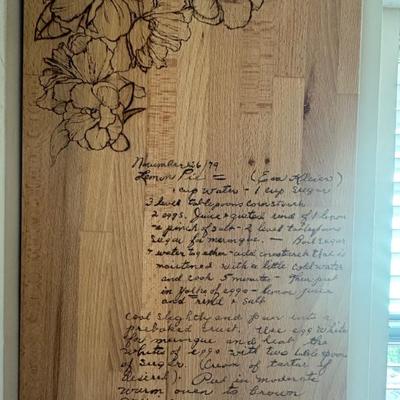 November 26/79
Lemon Pie = (Eva Kleier)
1 cup water - 1 cup sugar
3 level tablespoons cornstarch
2 eggs. Juice & grated rind of 1 lemon
a pinch of salt - 2 level tablespoons
sugar for meringue. - Boil sugar
& water together - add cornstarch that is
moistened with a little cold water
and cook 5 minutes - Then put
in yolks of eggs - lemon juice
and rind & salt
cool slightly and pour into a
prebaked crust. Use egg whites
for meringue and beat the
whites of eggs with two tablespoons
of sugar. (Cream of tartar if
desired). Put in moderate
warm oven to brown